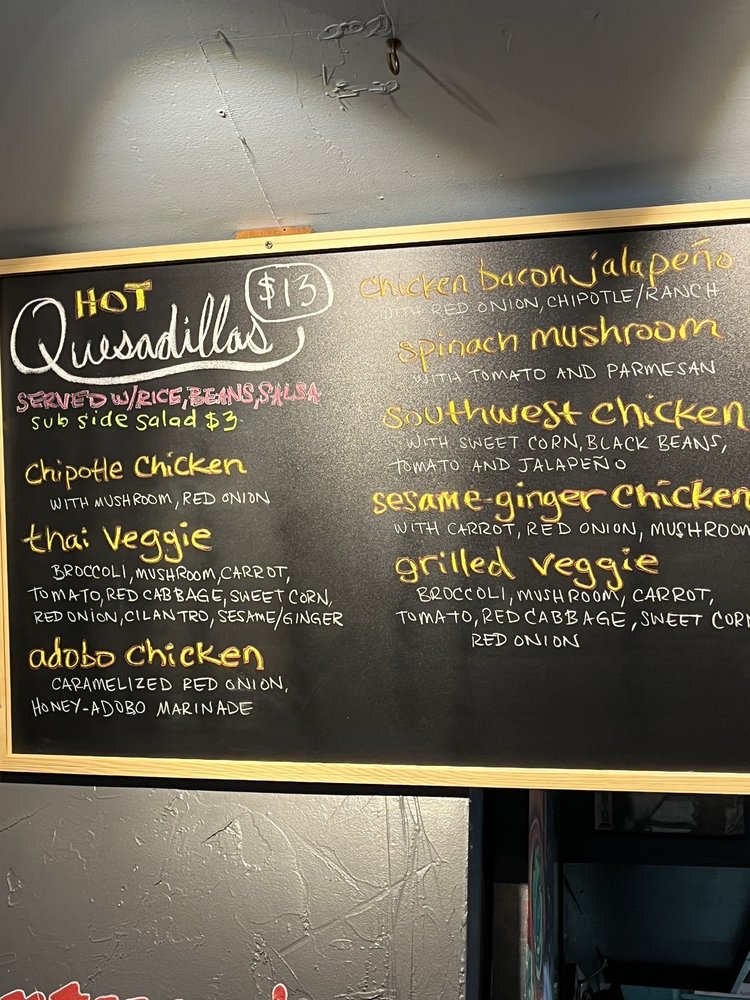 HOT
Quesadillas
$13
SERVED W/RICE, BEANS, SALSA
sub side salad $3
chipotle chicken
WITH MUSHROOM, RED ONION
thai veggie
BROCCOLI, MUSHROOM, CARROT,
TOMATO, RED CABBAGE, SWEET CORN,
RED ONION, CILANTRO, SESAME/GINGER
adobo chicken
CARAMELIZED RED ONION,
HONEY-ADOBO MARINADE
chicken bacon jalapeño
WITH RED ONION, CHIPOTLE/RANCH
spinach mushroom
WITH TOMATO AND PARMESAN
southwest chicken
WITH SWEET CORN, BLACK BEANS,
TOMATO AND JALAPEÑO
sesame-ginger chicken
WITH CARROT, RED ONION, MUSHROOM
grilled veggie
BROCCOLI, MUSHROOM, CARROT,
TOMATO, RED CABBAGE, SWEET CORN
RED ONION